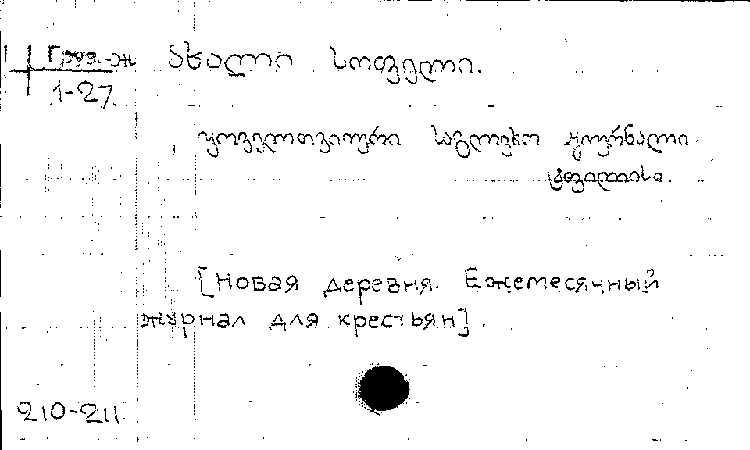 Груз.-ж ახალი სოფელი.
1-27
ყოველთვიური საგლეხო ჟურნალი.
ტფილისი.
[Новая деревня. Ежемесячный
журнал для крестьян].
210-211